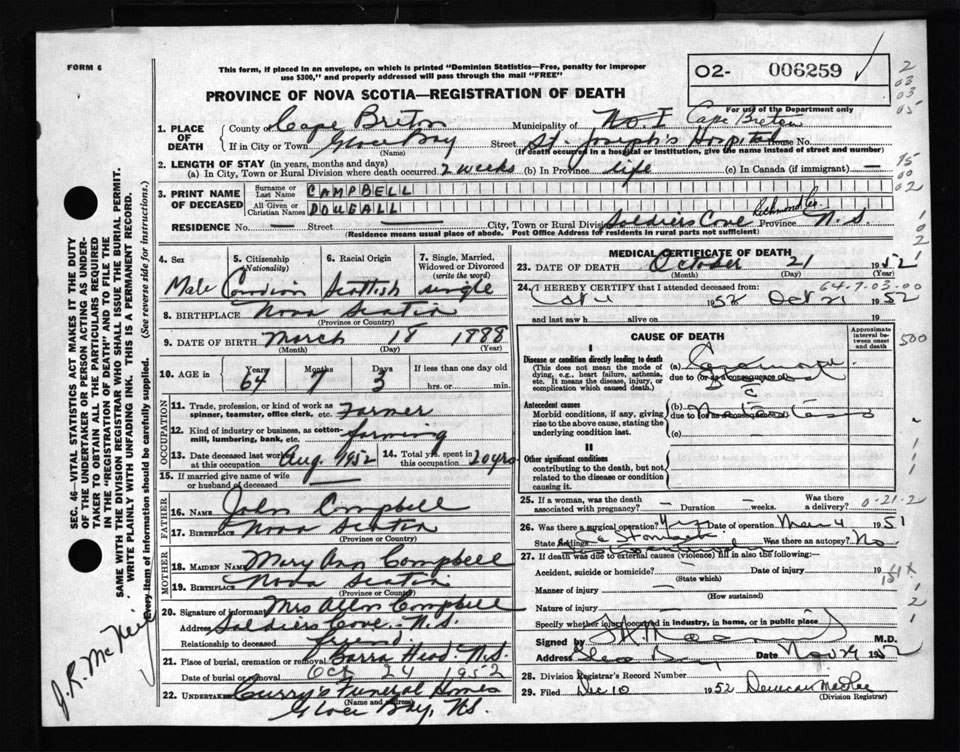 FORM 6
This form, if placed in an envelope, on which is printed "Dominion Statistics—Free, penalty for improper
use $300," and properly addressed will pass through the mail "FREE"
02- 006259
PROVINCE OF NOVA SCOTIA—REGISTRATION OF DEATH
For use of the Department only
2
03
03
05
1. PLACE OF DEATH
County of Cape Breton Municipality of No. I Cape Breton
If in City or Town Glace Bay (Name) Street St. Joseph's Hospital House No.
(If death occurred in a hospital or institution, give the name instead of street and number)
2. LENGTH OF STAY (in years, months and days)
(a) In City, Town or Rural Division where death occurred 2 weeks (b) In Province life (c) In Canada (if immigrant) —
3. PRINT NAME OF DECEASED
Surname or Last Name CAMPBELL
All Given or Christian Names DOUGALL
RESIDENCE No. — Street — City, Town or Rural Division Soldiers Cove Richmond Co. Province N.S.
(Residence means usual place of abode. Post Office Address for residents in rural parts not sufficient)
4. Sex Male
5. Citizenship (Nationality) Canadian
6. Racial Origin Scottish
7. Single, Married, Widowed or Divorced (write the word) single
8. BIRTHPLACE Nova Scotia
(Province or Country)
9. DATE OF BIRTH March 18 1888
(Month) (Day) (Year)
10. AGE in Years 64 Months 7 Days 3 If less than one day old
hrs. or min.
OCCUPATION
11. Trade, profession, or kind of work as spinner, teamster, office clerk, etc. Farmer
12. Kind of industry or business, as cotton-mill, lumbering, bank, etc. farming
13. Date deceased last worked at this occupation Aug. 1952 14. Total yrs. spent in this occupation 20 yrs
15. If married give name of wife or husband of deceased —
FATHER
16. NAME John Campbell
17. BIRTHPLACE Nova Scotia
(Province or Country)
MOTHER
18. MAIDEN NAME Mary Ann Campbell
19. BIRTHPLACE Nova Scotia
(Province or Country)
20. Signature of informant Mrs Allan Campbell
Address Soldiers Cove - N.S.
Relationship to deceased friend
21. Place of burial, cremation or removal Barra Head - N.S.
Date of burial or removal Oct 24 1952
22. Undertaker Curry's Funeral Homes
(Name and address)
Glace Bay, N.S.
MEDICAL CERTIFICATE OF DEATH
23. DATE OF DEATH October 21 1952
(Month) (Day) (Year)
64-7-03-00
24. I HEREBY CERTIFY that I attended deceased from:
1952 Oct 21 1952
and last saw h alive on 19
CAUSE OF DEATH
Approximate interval between onset and death
I
Disease or condition directly leading to death
(This does not mean the mode of dying, e.g., heart failure, asthenia, etc. It means the disease, injury, or complication which caused death.)
(a)
due to (or as a consequence of)
Antecedent causes
Morbid conditions, if any, giving rise to the above cause, stating the underlying condition last.
(b)
due to (or as a consequence of)
(c)
II
Other significant conditions
contributing to the death, but not related to the disease or condition causing it.
25. If a woman, was the death associated with pregnancy? — Duration weeks. Was there a delivery?
0-21-2
26. Was there a surgical operation? Yes Date of operation 4 1951
State findings Stomach Was there an autopsy? No
27. If death was due to external causes (violence) fill in also the following:—
Accident, suicide or homicide? Date of injury 19
(State which)
Manner of injury —
(How sustained)
Nature of injury
Specify whether injury occurred in industry, in home, or in public place
Signed by M.D.
Address Glace Bay Date Nov 1952
28. Division Registrar's Record Number
29. Filed Dec 10 1952 Duncan
(Division Registrar)
SEC. 46—VITAL STATISTICS ACT MAKES IT THE DUTY
OF THE UNDERTAKER OR PERSON ACTING AS UNDER-
TAKER TO OBTAIN ALL THE PARTICULARS REQUIRED
IN THE "REGISTRATION OF DEATH" AND TO FILE THE
SAME WITH THE DIVISION REGISTRAR WHO SHALL ISSUE THE BURIAL PERMIT.
WRITE PLAINLY WITH UNFADING INK. THIS IS A PERMANENT RECORD.
Every item of information should be carefully supplied. (See reverse side for instructions.)
500